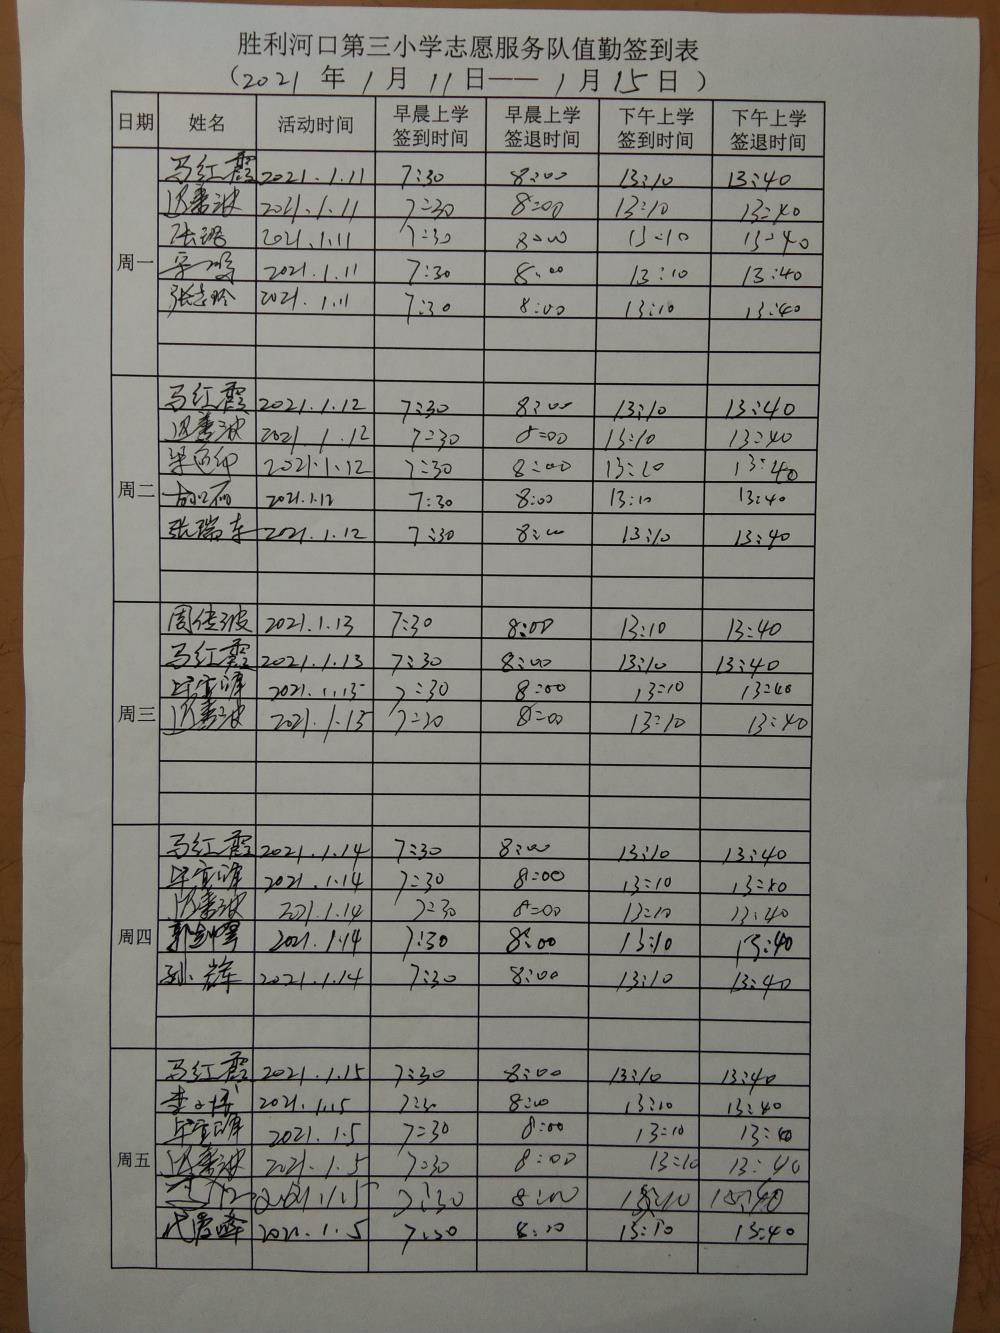 胜利河口第三小学志愿服务队值勤签到表
（2021 年 1 月 11 日—— 1 月 15 日 ）
日期 姓名 活动时间 早晨上学签到时间 早晨上学签退时间 下午上学签到时间 下午上学签退时间
周一
马红霞 2021.1.11 7:30 8:00 13:10 13:40
2021.1.11 7:30 8:00 13:10 13:40
张璐 2021.1.11 7:30 8:00 13:10 13:40
2021.1.11 7:30 8:00 13:10 13:40
张志玲 2021.1.11 7:30 8:00 13:10 13:40
周二
马红霞 2021.1.12 7:30 8:00 13:10 13:40
2021.1.12 7:30 8:00 13:10 13:40
2021.1.12 7:30 8:00 13:10 13:40
2021.1.12 7:30 8:00 13:10 13:40
张瑞东 2021.1.12 7:30 8:00 13:10 13:40
周三
周传波 2021.1.13 7:30 8:00 13:10 13:40
马红霞 2021.1.13 7:30 8:00 13:10 13:40
2021.1.13 7:30 8:00 13:10 13:40
2021.1.13 7:30 8:00 13:10 13:40
周四
马红霞 2021.1.14 7:30 8:00 13:10 13:40
2021.1.14 7:30 8:00 13:10 13:40
2021.1.14 7:30 8:00 13:10 13:40
2021.1.14 7:30 8:00 13:10 13:40
孙辉 2021.1.14 7:30 8:00 13:10 13:40
周五
马红霞 2021.1.15 7:30 8:00 13:10 13:40
2021.1.15 7:30 8:00 13:10 13:40
2021.1.5 7:30 8:00 13:10 13:40
2021.1.5 7:30 8:00 13:10 13:40
2021.1.15 7:30 8:00
2021.1.5 7:30 13:10 13:40